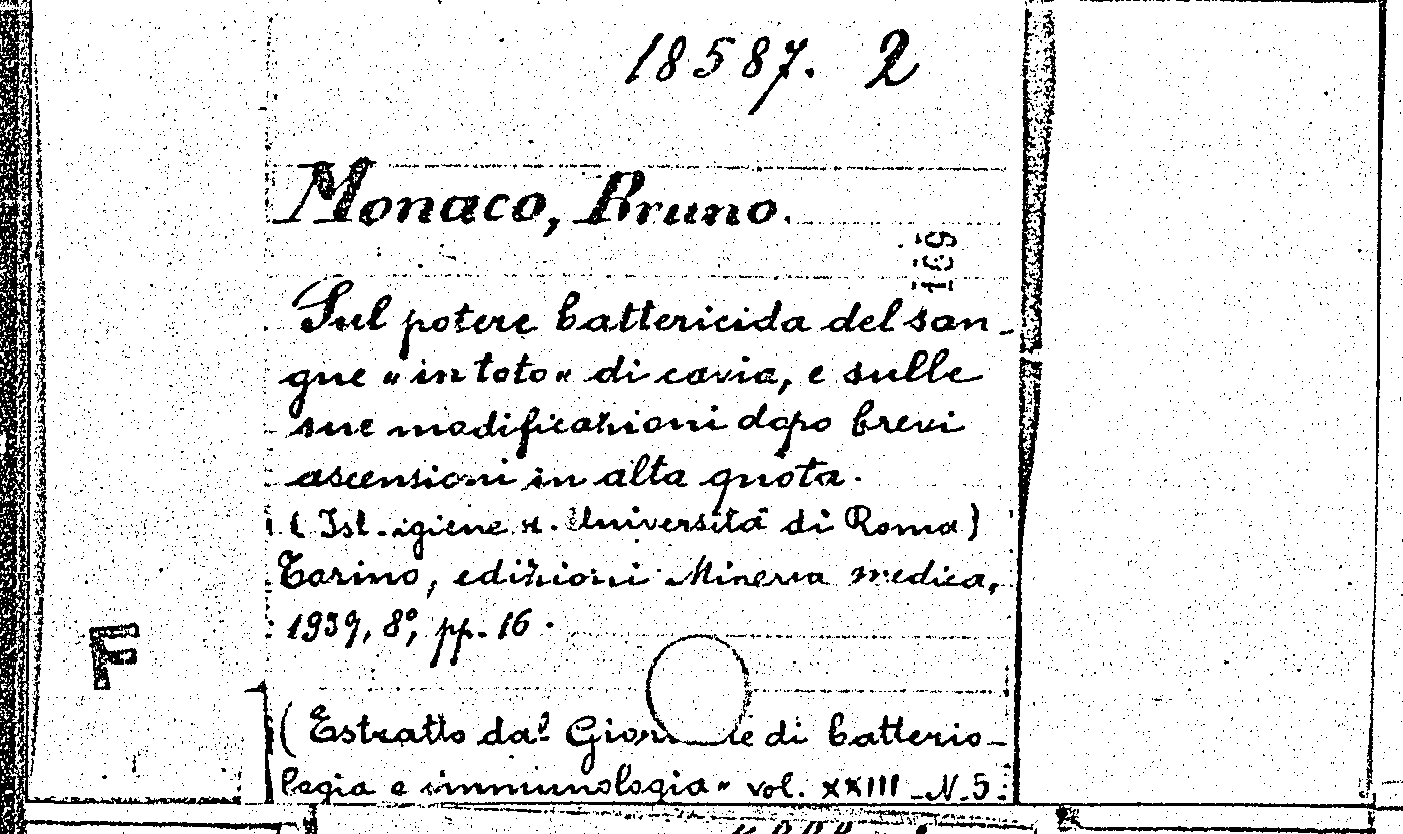 18587. 2
Monaco, Bruno.
199
Sul potere battericida del san-
gue "in toto" di cavia, e sulle
sue modificazioni dopo brevi
ascensioni in alta quota.
(Ist. igiene R. Università di Roma)
Torino, edizioni Minerva medica,
1939, 8°, pp. 16.
F
(Estratto dal di batterio-
logia e immunologia" vol. XXIII - N. 5.